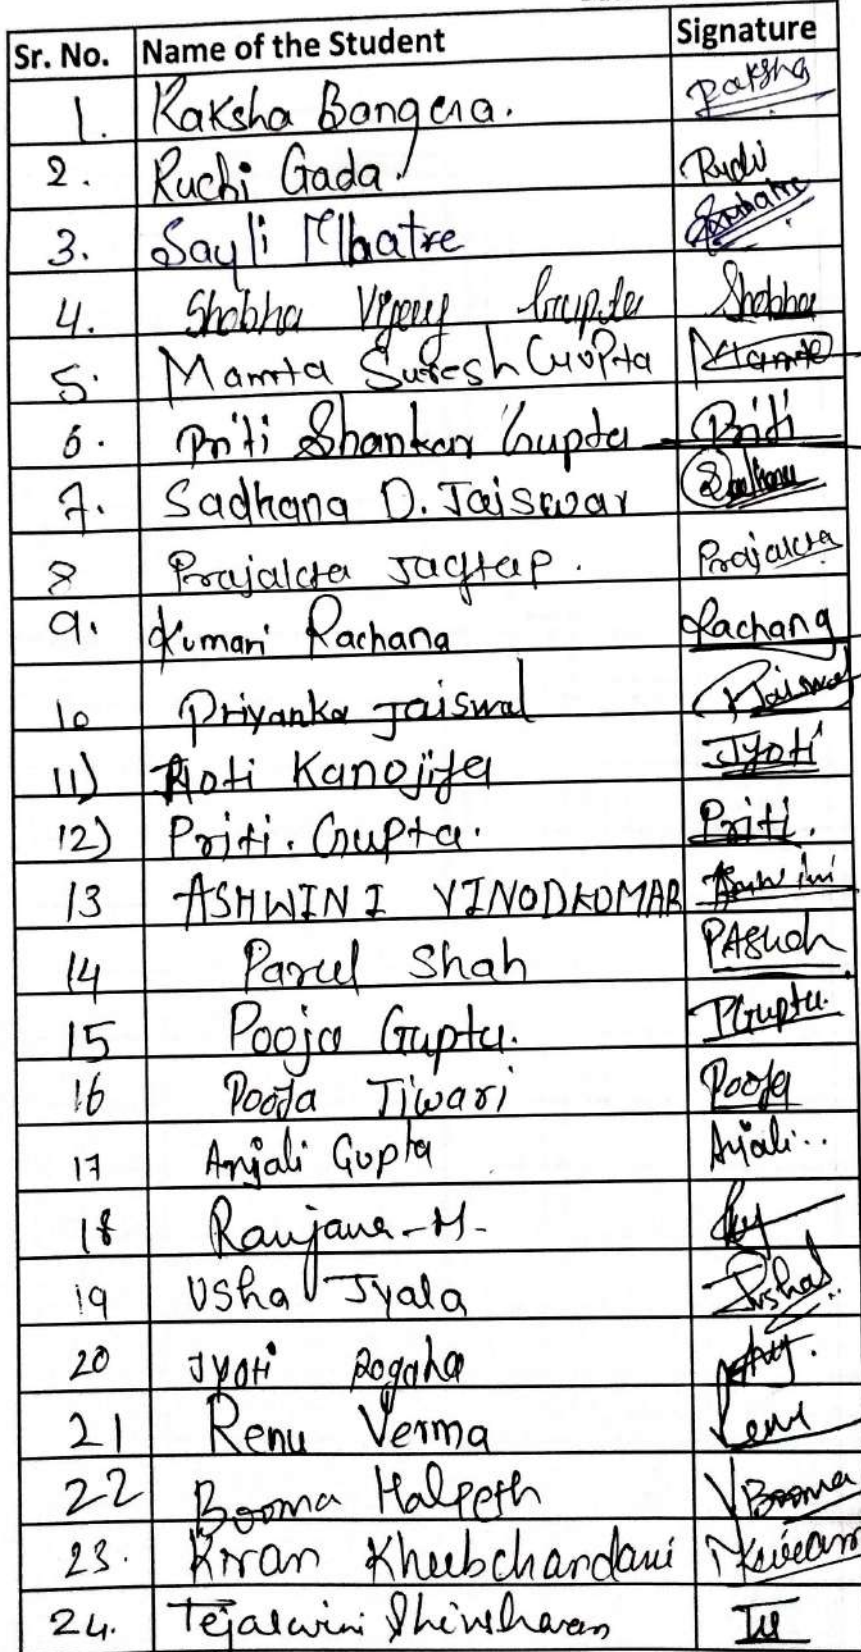 Sr. No. Name of the Student Signature
1. Raksha Bangera. Raksha
2. Ruchi Gada. Ruchi
3. Sayli Mhatre
4. Shobha Vijay Gupta Shobha
5. Mamta Suresh Gupta Mamta
6. Priti Shankar Gupta Priti
7. Sadhana D. Jaiswar Sadhana
8 Prajakta Jagtap. Prajakta
9. Kumari Rachana Rachana
10 Priyanka Jaiswal PJaiswal
11) Jyoti Kanojiya Jyoti
12) Priti. Gupta. Priti.
13 ASHWINI VINODKUMAR Ashwini
14 Parul Shah PAShah
15 Pooja Gupta. PGupta.
16 Pooja Tiwari Pooja
17 Anjali Gupta Anjali..
18 Ranjana-M-
19 Usha Jyala
20 Jyoti Rogaha
21 Renu Verma Renu
22 Booma Halpeth VBooma
23. Kiran Khubchandani
24. Tejaswini Shivsharan